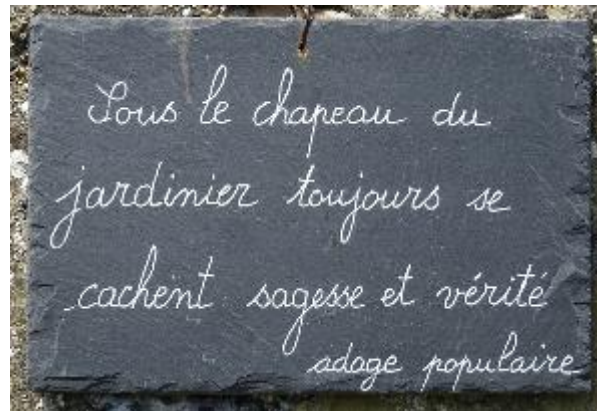 Sous le chapeau du
jardinier toujours se
cachent sagesse et vérité
adage populaire